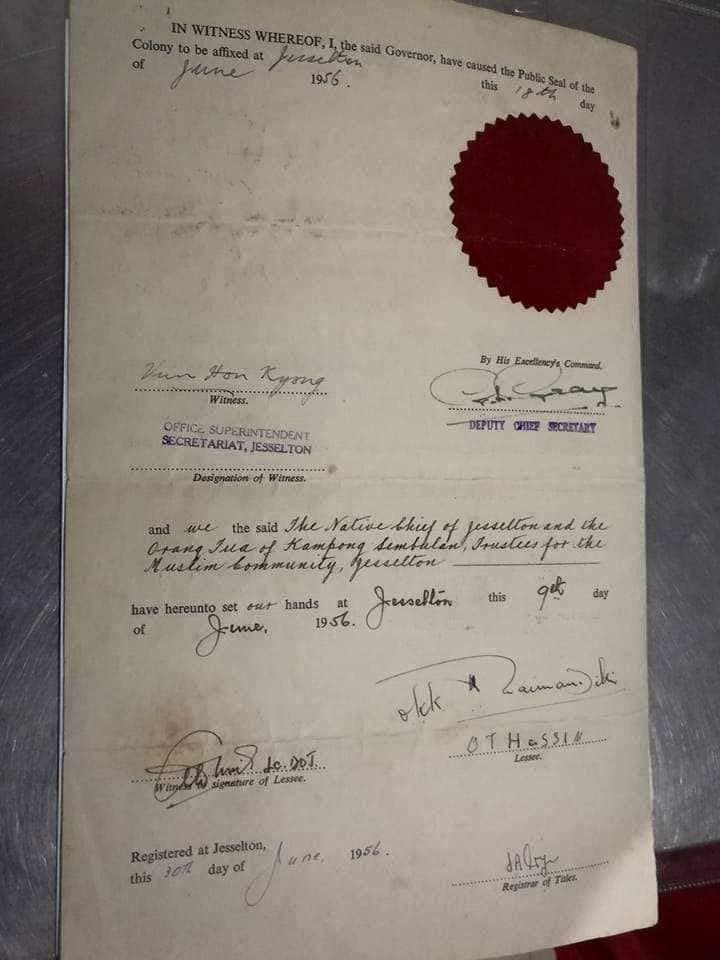 IN WITNESS WHEREOF, I, the said Governor, have caused the Public Seal of the
Colony to be affixed at Jesselton this 18th day
of June 1956.
By His Excellency's Command.
Vun Hon Kyong
Witness.
OFFICE SUPERINTENDENT
SECRETARIAT, JESSELTON
DEPUTY CHIEF SECRETARY
Designation of Witness.
and we the said The Native Chief of Jesselton and the
Orang Tua of Kampong Sembulan, Trustees for the
Muslim Community, Jesselton
have hereunto set our hands at Jesselton this 9th day
of June, 1956.
OKK
OT HASSIN
Lessee.
Witness to signature of Lessee.
Registered at Jesselton,
this 30th day of June, 1956.
Registrar of Titles.